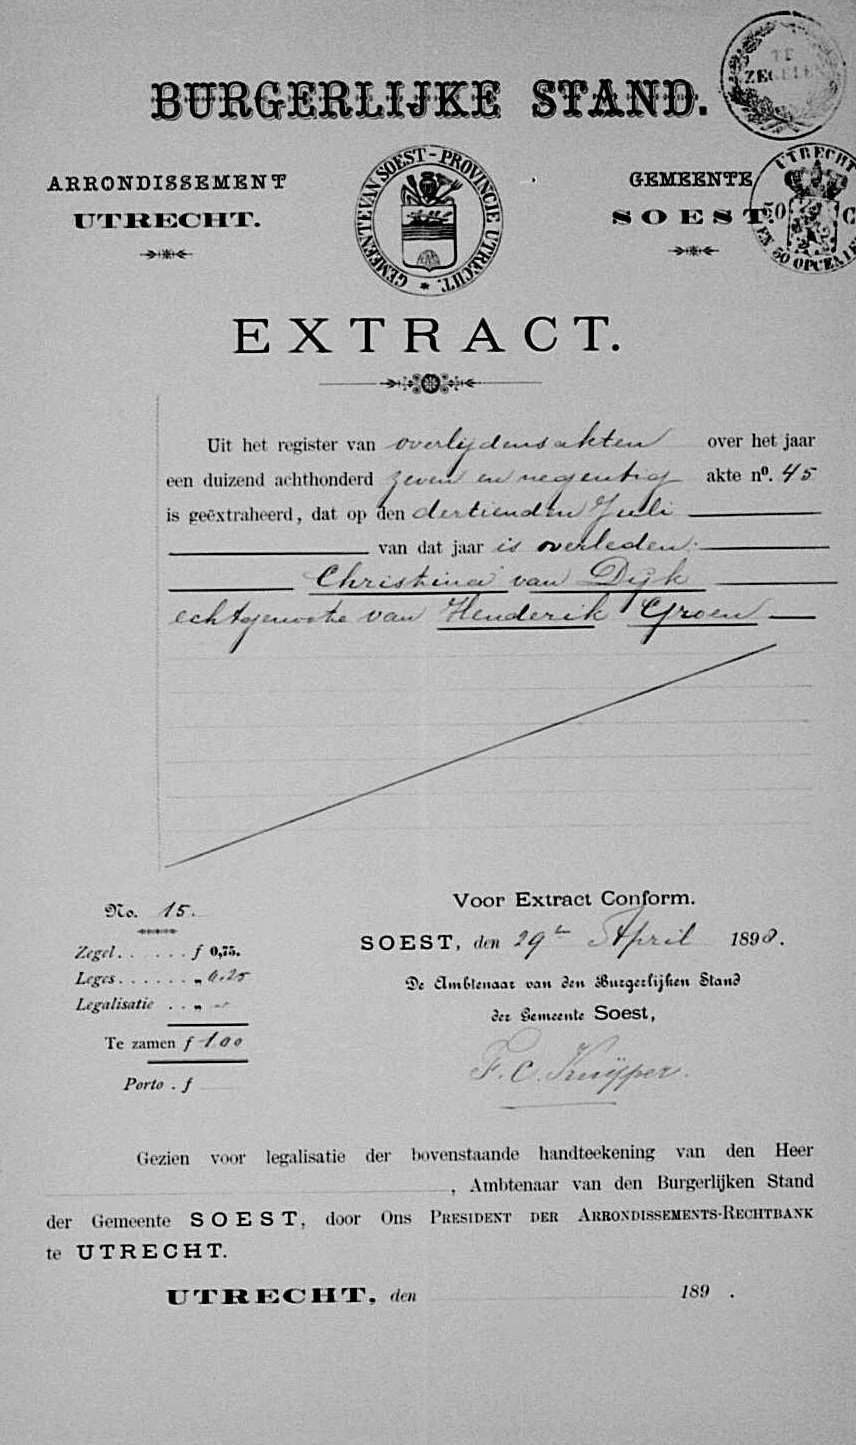 TE
ZEGELEN
BURGERLIJKE STAND.
ARRONDISSEMENT
UTRECHT.
GEMEENTE VAN SOEST - PROVINCIE UTRECHT.
GEMEENTE
SOEST
UTRECHT
50 C
EN 50 OPCEN
EXTRACT.
Uit het register van overlijdensakten over het jaar
een duizend achthonderd zeven en negentig akte no. 45
is geëxtraheerd, dat op den dertienden Juli
van dat jaar is overleden:
Christina van Dijk
echtgenoote van Henderik Groen
No. 15.
Zegel. . . . . . f 0,75.
Leges . . . . . . „ 0.25
Legalisatie . . „ -
Te zamen f 1.00
Porto . f
Voor Extract Conform.
SOEST, den 29en April 1898.
De Ambtenaar van den Burgerlijken Stand
der Gemeente Soest,
F. C. Kuijper.
Gezien voor legalisatie der bovenstaande handteekening van den Heer
, Ambtenaar van den Burgerlijken Stand
der Gemeente SOEST, door Ons PRESIDENT DER ARRONDISSEMENTS-RECHTBANK
te UTRECHT.
UTRECHT, den 189 .